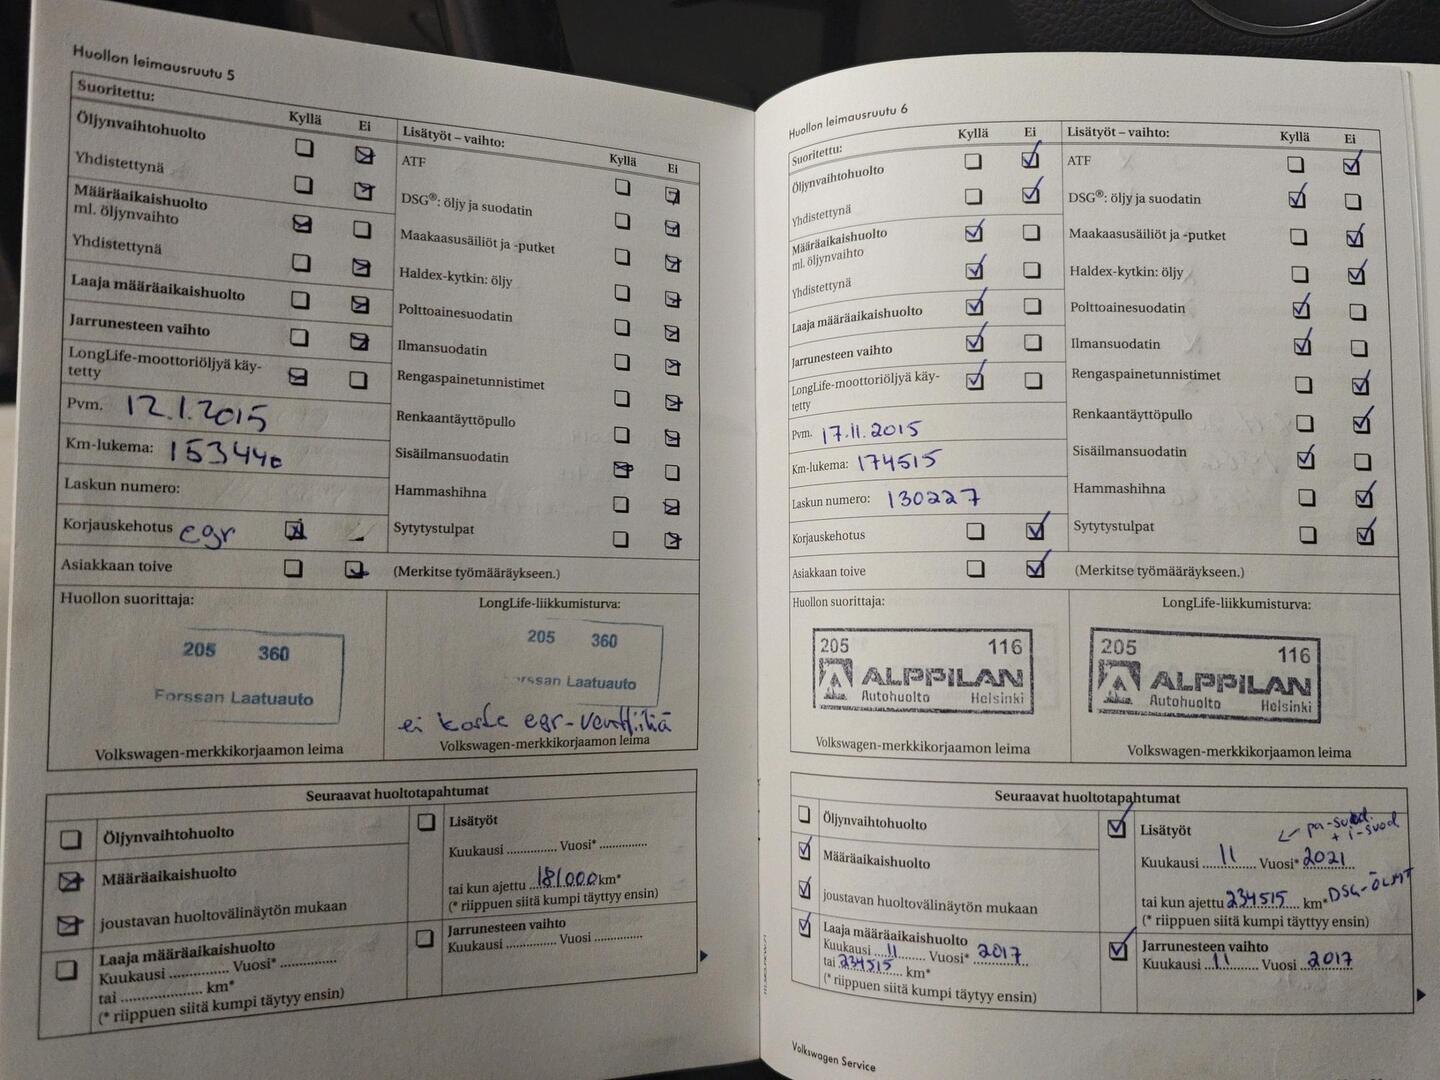 Huollon leimausruutu 5
Suoritettu:
Kyllä Ei
Öljynvaihtohuolto
Yhdistettynä
Määräaikaishuolto
ml. öljynvaihto
Yhdistettynä
Laaja määräaikaishuolto
Jarrunesteen vaihto
LongLife-moottoriöljyä käy-
tetty
Pvm. 12.1.2015
Km-lukema: 153440
Laskun numero:
Korjauskehotus egr
Asiakkaan toive
Lisätyöt – vaihto:
Kyllä Ei
ATF
DSG®: öljy ja suodatin
Maakaasusäiliöt ja -putket
Haldex-kytkin: öljy
Polttoainesuodatin
Ilmansuodatin
Rengaspainetunnistimet
Renkaantäyttöpullo
Sisäilmansuodatin
Hammashihna
Sytytystulpat
(Merkitse työmääräykseen.)
Huollon suorittaja:
205 360
Forssan Laatuauto
Volkswagen-merkkikorjaamon leima
LongLife-liikkumisturva:
205 360
rssan Laatuauto
ei koske egr-venttiiliä
Volkswagen-merkkikorjaamon leima
Seuraavat huoltotapahtumat
Öljynvaihtohuolto
Määräaikaishuolto
joustavan huoltovälinäytön mukaan
Laaja määräaikaishuolto
Kuukausi ............... Vuosi* ...............
tai ..................... km*
(* riippuen siitä kumpi täytyy ensin)
Lisätyöt
Kuukausi ............. Vuosi* .............
tai kun ajettu 181000 km*
(* riippuen siitä kumpi täyttyy ensin)
Jarrunesteen vaihto
Kuukausi ............. Vuosi .............
Huollon leimausruutu 6
Suoritettu:
Kyllä Ei
Öljynvaihtohuolto
Yhdistettynä
Määräaikaishuolto
ml. öljynvaihto
Yhdistettynä
Laaja määräaikaishuolto
Jarrunesteen vaihto
LongLife-moottoriöljyä käy-
tetty
Pvm. 17.11.2015
Km-lukema: 174515
Laskun numero: 130227
Korjauskehotus
Asiakkaan toive
Lisätyöt – vaihto:
Kyllä Ei
ATF
DSG®: öljy ja suodatin
Maakaasusäiliöt ja -putket
Haldex-kytkin: öljy
Polttoainesuodatin
Ilmansuodatin
Rengaspainetunnistimet
Renkaantäyttöpullo
Sisäilmansuodatin
Hammashihna
Sytytystulpat
(Merkitse työmääräykseen.)
Huollon suorittaja:
205 116
ALPPILAN
Autohuolto Helsinki
Volkswagen-merkkikorjaamon leima
LongLife-liikkumisturva:
205 116
ALPPILAN
Autohuolto Helsinki
Volkswagen-merkkikorjaamon leima
Seuraavat huoltotapahtumat
Öljynvaihtohuolto
Määräaikaishuolto
joustavan huoltovälinäytön mukaan
Laaja määräaikaishuolto
Kuukausi 11 Vuosi* 2017
tai 234515 km*
(* riippuen siitä kumpi täytyy ensin)
Lisätyöt
pa-suod.
+ i-suod
Kuukausi 11 Vuosi* 2021
tai kun ajettu 234515 km* DSG-ÖLJYT
(* riippuen siitä kumpi täyttyy ensin)
Jarrunesteen vaihto
Kuukausi 11 Vuosi 2017
Volkswagen Service